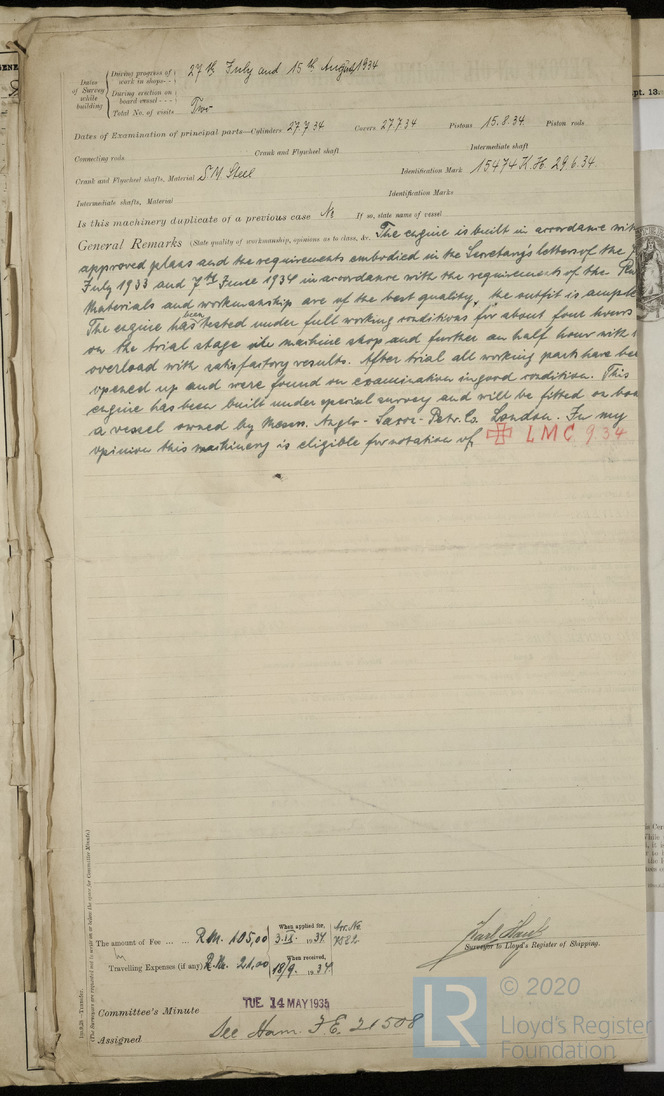 Dates of Survey while building
During progress of work in shops - - 27th July and 15th August 1934
During erection on board vessel - - -
Total No. of visits Two
Dates of Examination of principal parts—Cylinders 27.7.34 Covers 27.7.34 Pistons 15.8.34. Piston rods
Connecting rods Crank and Flywheel shaft Intermediate shaft
Crank and Flywheel shafts, Material S.M. Steel Identification Mark 15474 K.H. 29.6.34.
Intermediate shafts, Material Identification Marks
Is this machinery duplicate of a previous case No If so, state name of vessel
General Remarks (State quality of workmanship, opinions as to class, &c. The engine is built in accordance with
approved plans and the requirements embodied in the Secretary's letters of the
July 1933 and 7th June 1934 in accordance with the requirements of the
Materials and workmanship are of the best quality, the outfit is ample
The engine has been tested under full working conditions for about four hours
on the trial stage machine shop and further an half hour with
overload with satisfactory results. After trial all working parts have be
opened up and were found on examination in good condition. This
engine has been built under special survey and will be fitted on boa
a vessel owned by Messrs. Anglo-Saxon Petr. Co. London. In my
opinion this machinery is eligible for notation of ✠ LMC 9.34
Im.8.28.—Transfer.
(The Surveyors are requested not to write on or below the space for Committee Minute.)
The amount of Fee ... ... R.M. 105,00 When applied for, 3.IX. 1934 Arr. No.
Travelling Expenses (if any) R.M. 21,00 When received, 18/9. 1934
Surveyor to Lloyd's Register of Shipping.
Committee's Minute TUE. 14 MAY 1935
Assigned See Ham. F.E. 21508
LR © 2020
Lloyd's Register
Foundation
pt. 13.